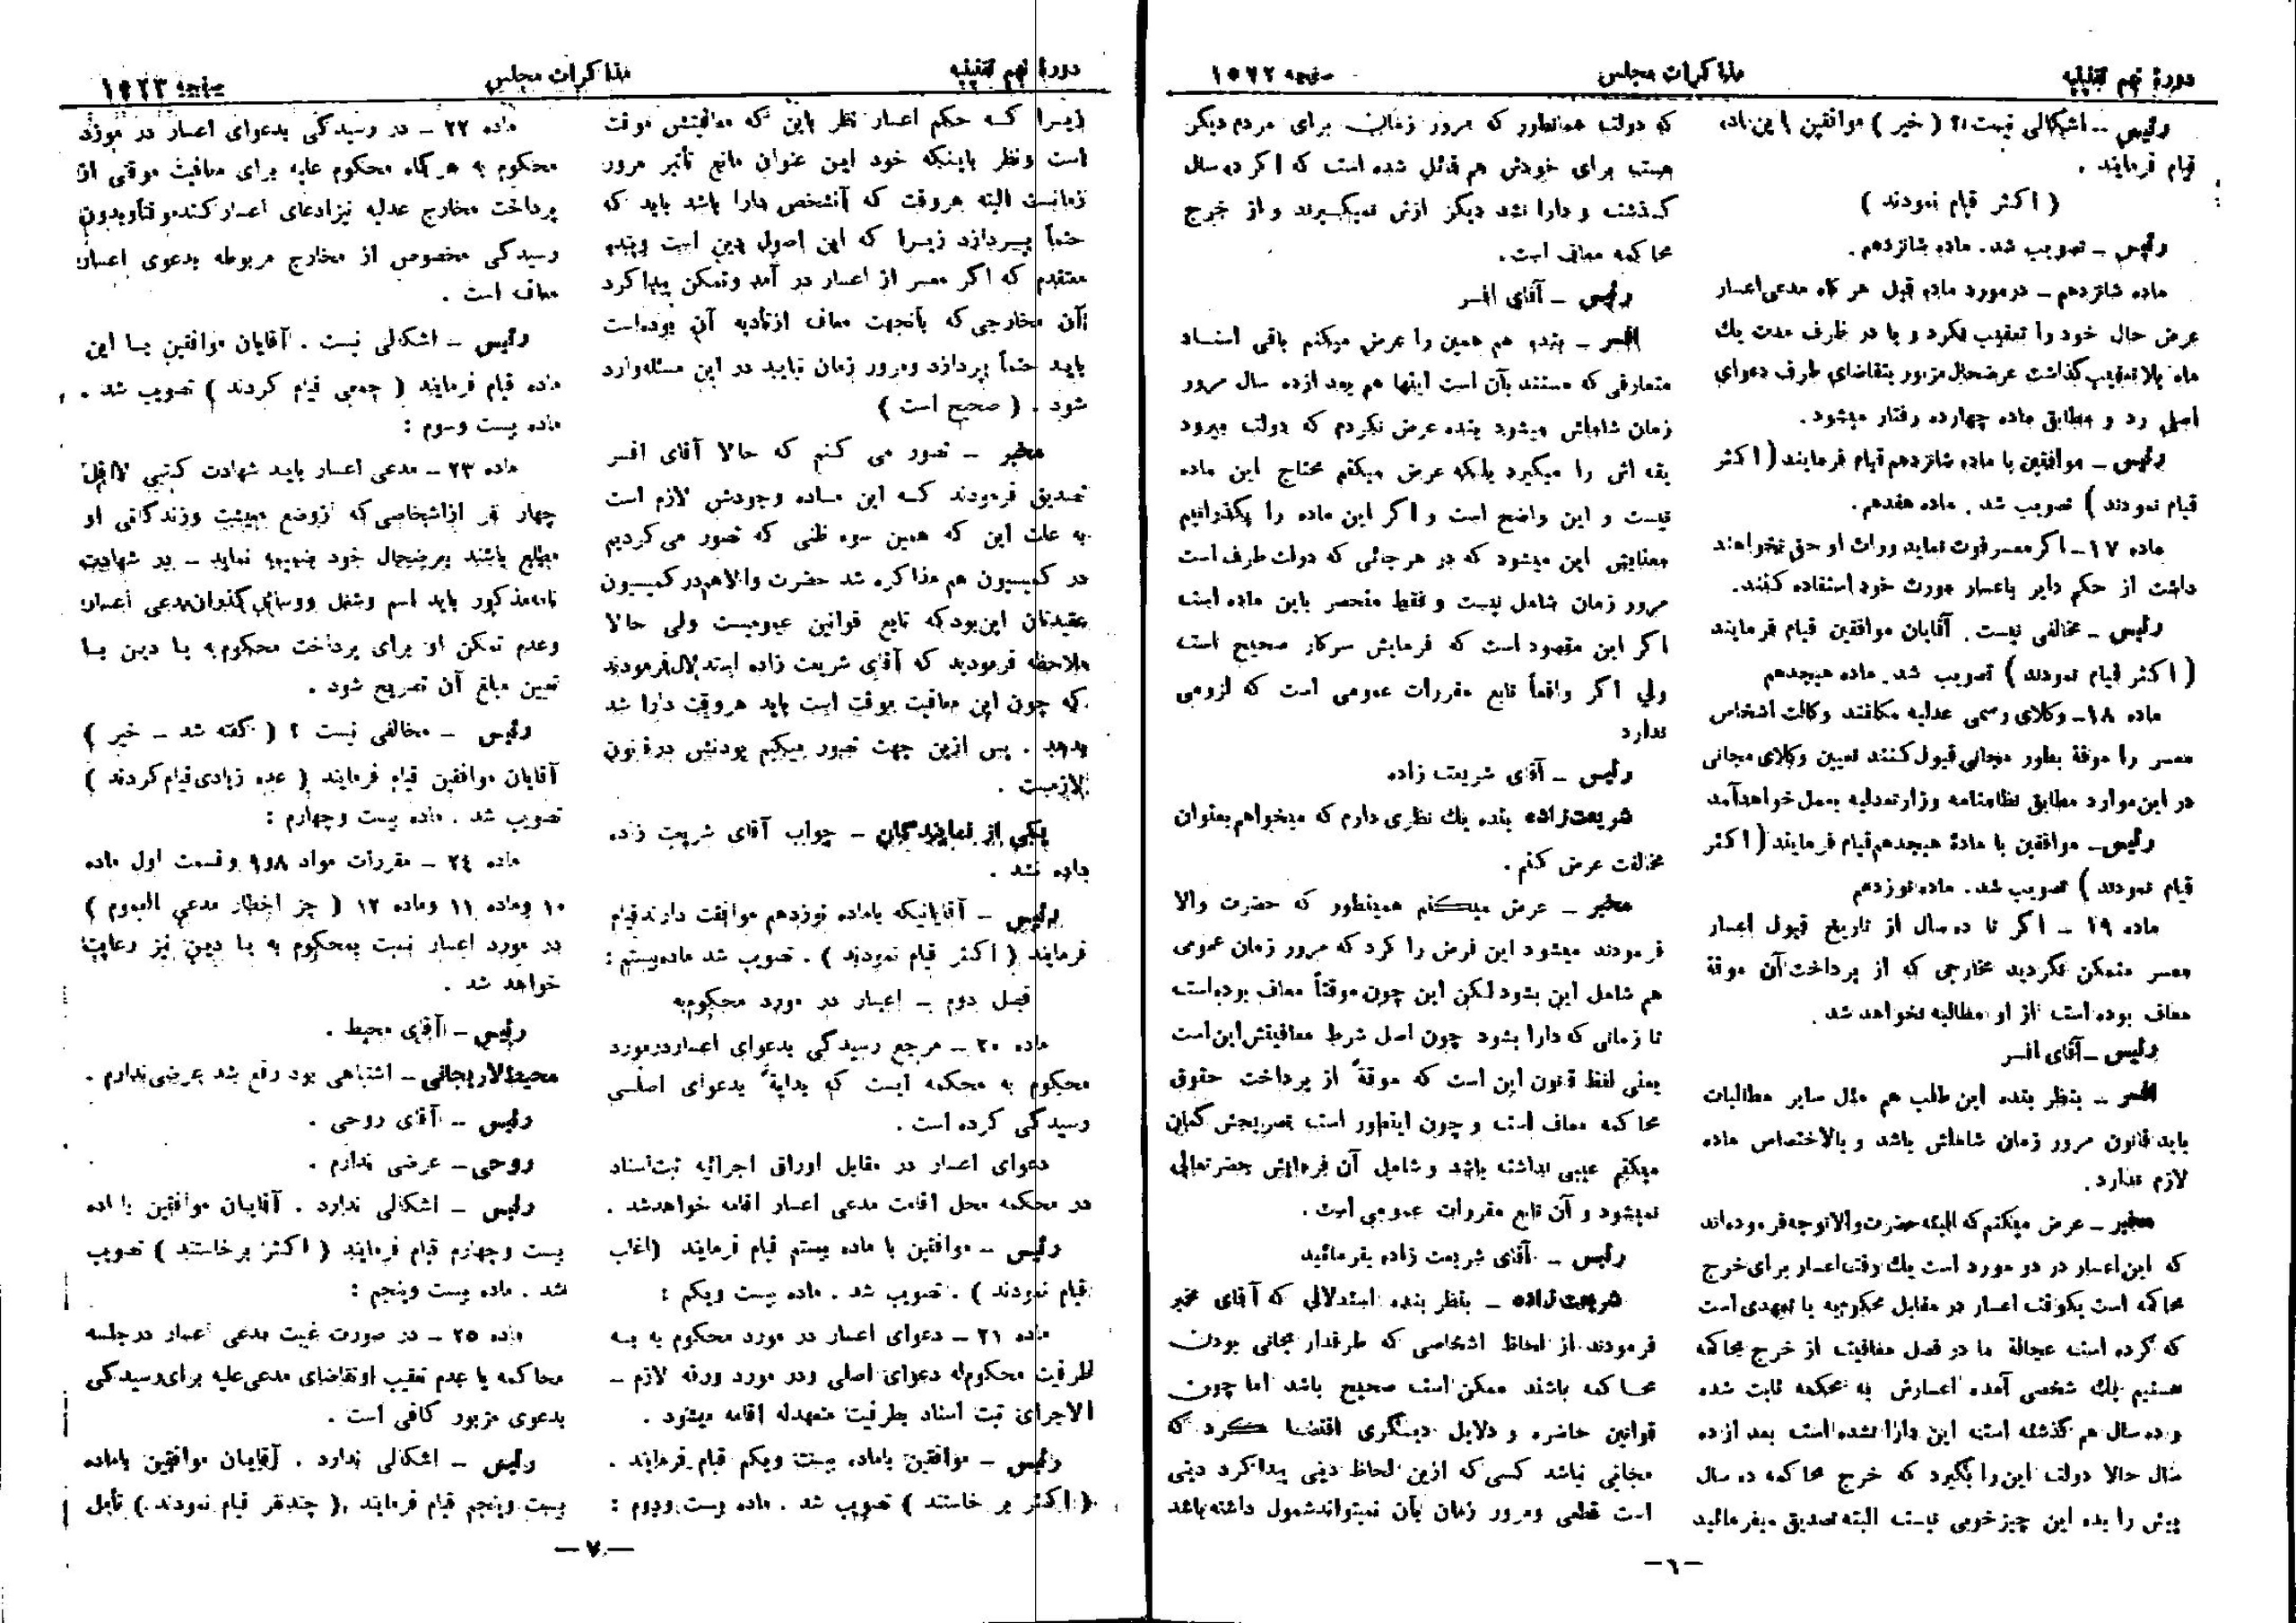 دورهٔ نهم تقنینیه
مذاکرات مجلس
صفحه ۱۵۷۲
رئیس ـ اشکالی نیست ؟ ( خیر ) موافقین با این ماده
قیام فرمایند .
( اکثر قیام نمودند )
رئیس ـ تصویب شد. ماده شانزدهم.
ماده شانزدهم ـ درمورد ماده قبل هر گاه مدعی اعسار
عرض حال خود را تعقیب نکرد و یا در ظرف مدت یك
ماه بلاتعقیب گذاشت عرضحال مزبور بتقاضای طرف دعوای
اصلی رد و مطابق ماده چهارده رفتار میشود.
رئیس ـ موافقین با ماده شانزدهم قیام فرمایند ( اکثر
قیام نمودند ) تصویب شد . ماده هفدهم.
ماده ۱۷ ـ اگر معسر فوت نماید وراث او حق نخواهند
داشت از حکم دایر باعسار مورث خود استفاده کنند.
رئیس ـ مخالفی نیست . آقایان موافقین قیام فرمایند
( اکثر قیام نمودند ) تصویب شد. ماده هیجدهم
ماده ۱۸ـ وکلای رسمی عدلیه مکلفند وکالت اشخاص
معسر را موقة بطور مجانی قبول کنند تعیین وکلای مجانی
در این موارد مطابق نظامنامه وزارتعدلیه بعمل خواهد آمد
رئیس ـ موافقین با مادهٔ هیجدهم قیام فرمایند ( اکثر
قیام نمودند ) تصویب شد. ماده نوزدهم
ماده ۱۹ ـ اگر تا ده سال از تاریخ قبول اعسار
معسر متمکن نگردید مخارجی که از پرداخت آن موقة
معاف بوده است از او مطالبه نخواهد شد .
رئیس ـ آقای افسر
افسر ـ بنظر بنده این طلب هم مثل سایر مطالبات
باید قانون مرور زمان شاملش باشد و بالاختصاص ماده
لازم ندارد.
مخبر ـ عرض میکنم که البته حضرت والا توجه فرموده‌اند
که این اعسار در دو مورد است یك وقت اعسار برای خرج
محاکمه است یکوقت اعسار در مقابل محکوم‌به یا تعهدی است
که کرده است عجالة ما در فصل معافیت از خرج محاکمه
هستیم یك شخصی آمده اعسارش به محکمه ثابت شده
و ده سال هم گذشته است این دارا نشده است بعد از ده
سال حالا دولت این را بگیرد که خرج محاکمه ده سال
پیش را بده این چیز خوبی نیست البته تصدیق میفرمائید
که دولت همانطور که مرور زمان برای مردم دیگر
هست برای خودش هم قائل شده است که اگر ده سال
گذشت و دارا نشد دیگر ازش نمیگیرند و از خرج
محاکمه معاف است.
رئیس ـ آقای افسر
افسر ـ بنده هم همین را عرض میکنم باقی اسناد
متعارفی که مستند بآن است اینها هم بعد از ده سال مرور
زمان شاملش میشود بنده عرض نکردم که دولت میرود
یقه اش را میگیرد بلکه عرض میکنم محتاج این ماده
نیست و این واضح است و اگر این ماده را بگذرانیم
معنایش این میشود که در هر جائی که دولت طرف است
مرور زمان شامل نیست و فقط منحصر باین ماده است
اگر این مقصود است که فرمایش سرکار صحیح است
ولی اگر واقعاً تابع مقررات عمومی است که لزومی
ندارد
رئیس ـ آقای شریعت زاده
شریعت‌زاده بنده یك نظری دارم که میخواهم بعنوان
مخالفت عرض کنم.
مخبر ـ عرض میکنم همینطور که حضرت والا
فرمودند میشود این فرض را کرد که مرور زمان عمومی
هم شامل این بشود لکن این چون موقتاً معاف بوده است
تا زمانی که دارا بشود چون اصل شرط معافیتش این است
یعنی لفظ قانون این است که موقةً از پرداخت حقوق
محاکمه معاف است و چون اینطور است تصریحش گمان
میکنم عیبی نداشته باشد و شامل آن فرمایش حضرتعالی
نمیشود و آن تابع مقررات عمومی است.
رئیس ـ آقای شریعت زاده بفرمائید
شریعت‌زاده ـ بنظر بنده استدلالی که آقای مخبر
فرمودند از لحاظ اشخاصی که طرفدار مجانی بودن
محاکمه باشند ممکن است صحیح باشد اما چون
قوانین حاضره و دلایل دیگری اقتضا کرد که
مجانی نباشد کسی که ازین لحاظ دینی پیدا کرد دینی
است قطعی ومرور زمان بآن نمیتواند شمول داشته باشد
ـ٦ـ
دورهٔ نهم تقنینیه
مذاکرات مجلس
صفحه ۱۵۷۳
زیرا که حکم اعسار نظر باین که معافیتش موقت
است ونظر باینکه خود این عنوان مانع تأثیر مرور
زمانست البته هروقت که آنشخص دارا باشد باید که
حتماً بپردازد زیرا که این اصول دین است وبنده
معتقدم که اگر معسر از اعسار در آمد وتمکن پیدا کرد
آن مخارجی که بآنجهت معاف ازتأدیه آن بوده‌است
باید حتماً بپردازد ومرور زمان نباید در این مسئله وارد
شود . ( صحیح است )
مخبر ـ تصور می کنم که حالا آقای افسر
تصدیق فرمودند که این ماده وجودش لازم است
به علت این که همین سوء ظنی که تصور می‌کردیم
در کمیسیون هم مذاکره شد حضرت والاهم در کمیسیون
عقیدتان این‌بود که تابع قوانین عمومیست ولی حالا
ملاحظه فرمودید که آقای شریعت زاده استدلال فرمودند
که چون این معافیت موقت است باید هروقت دارا شد
بدهد . پس ازین جهت تصور میکنم بودنش درقانون
لازمست .
یکی از نمایندگان ـ جواب آقای شریعت زاده
داده شد .
رئیس ـ آقایانیکه باماده نوزدهم موافقت دارند قیام
فرمایند ( اکثر قیام نمودند ) . تصویب شد ماده بیستم :
فصل دوم ـ اعسار در مورد محکوم‌به
ماده ۲۰ ـ مرجع رسیدگی بدعوای اعسار درمورد
محکوم به محکمه ایست که بدایةً بدعوای اصلی
رسیدگی کرده است .
دعوای اعسار در مقابل اوراق اجرائیه ثبت‌اسناد
در محکمه محل اقامت مدعی اعسار اقامه خواهدشد .
رئیس ـ موافقین با ماده بیستم قیام فرمایند (اغلب
قیام نمودند ) . تصویب شد . ماده بیست ویکم :
ماده ۲۱ ـ دعوای اعسار در مورد محکوم به به
طرفیت محکوم‌له دعوای اصلی ودر مورد ورقه لازم ـ
الاجرای ثبت اسناد بطرفیت متعهدله اقامه میشود .
رئیس ـ موافقین باماده بیست ویکم قیام فرمایند .
( اکثر بر خاستند ) تصویب شد . ماده بیست ودوم :
ماده ۲۲ ـ در رسیدگی بدعوای اعسار در مورد
محکوم به هرگاه محکوم علیه برای معافیت موقتی از
پرداخت مخارج عدلیه نیز ادعای اعسار کند موقتاً وبدون
رسیدگی مخصوص از مخارج مربوطه بدعوی اعسار
معاف است .
رئیس ـ اشکالی نیست . آقایان موافقین با این
ماده قیام فرمایند ( جمعی قیام کردند ) تصویب شد .
ماده بیست وسوم :
ماده ۲۳ ـ مدعی اعسار باید شهادت کتبی لااقل
چهار نفر از اشخاصی که از وضع معیشت وزندگانی او
مطلع باشند بعرضحال خود ضمیمه نماید ـ در شهادت
نامه مذکور باید اسم وشغل ووسائل گذران مدعی اعسار
وعدم تمکن او برای پرداخت محکوم‌به یا دین با
تعیین مبلغ آن تصریح شود .
رئیس ـ مخالفی نیست ؟ ( گفته شد ـ خیر )
آقایان موافقین قیام فرمایند ( عده زیادی قیام کردند )
تصویب شد . ماده بیست وچهارم :
ماده ۲٤ ـ مقررات مواد ۸و۹ وقسمت اول ماده
۱۰ وماده ۱۱ وماده ۱۲ ( جز اخطار مدعی العموم )
در مورد اعسار نسبت بمحکوم به یا دین نیز رعایت
خواهد شد .
رئیس ـ آقای محیط .
محیط‌لاریجانی ـ اشتباهی بود رفع شد عرضی ندارم .
رئیس ـ آقای روحی .
روحی ـ عرضی ندارم .
رئیس ـ اشکالی ندارد . آقایان موافقین با ماده
بیست وچهارم قیام فرمایند ( اکثر برخاستند ) تصویب
شد . ماده بیست وپنجم :
ماده ۲۵ ـ در صورت غیبت مدعی اعسار درجلسه
محاکمه یا عدم تعقیب او تقاضای مدعی‌علیه برای رسیدگی
بدعوی مزبور کافی است .
رئیس ـ اشکالی ندارد . آقایان موافقین باماده
بیست وپنجم قیام فرمایند ( چندنفر قیام نمودند ) تأمل
ـ۷ـ